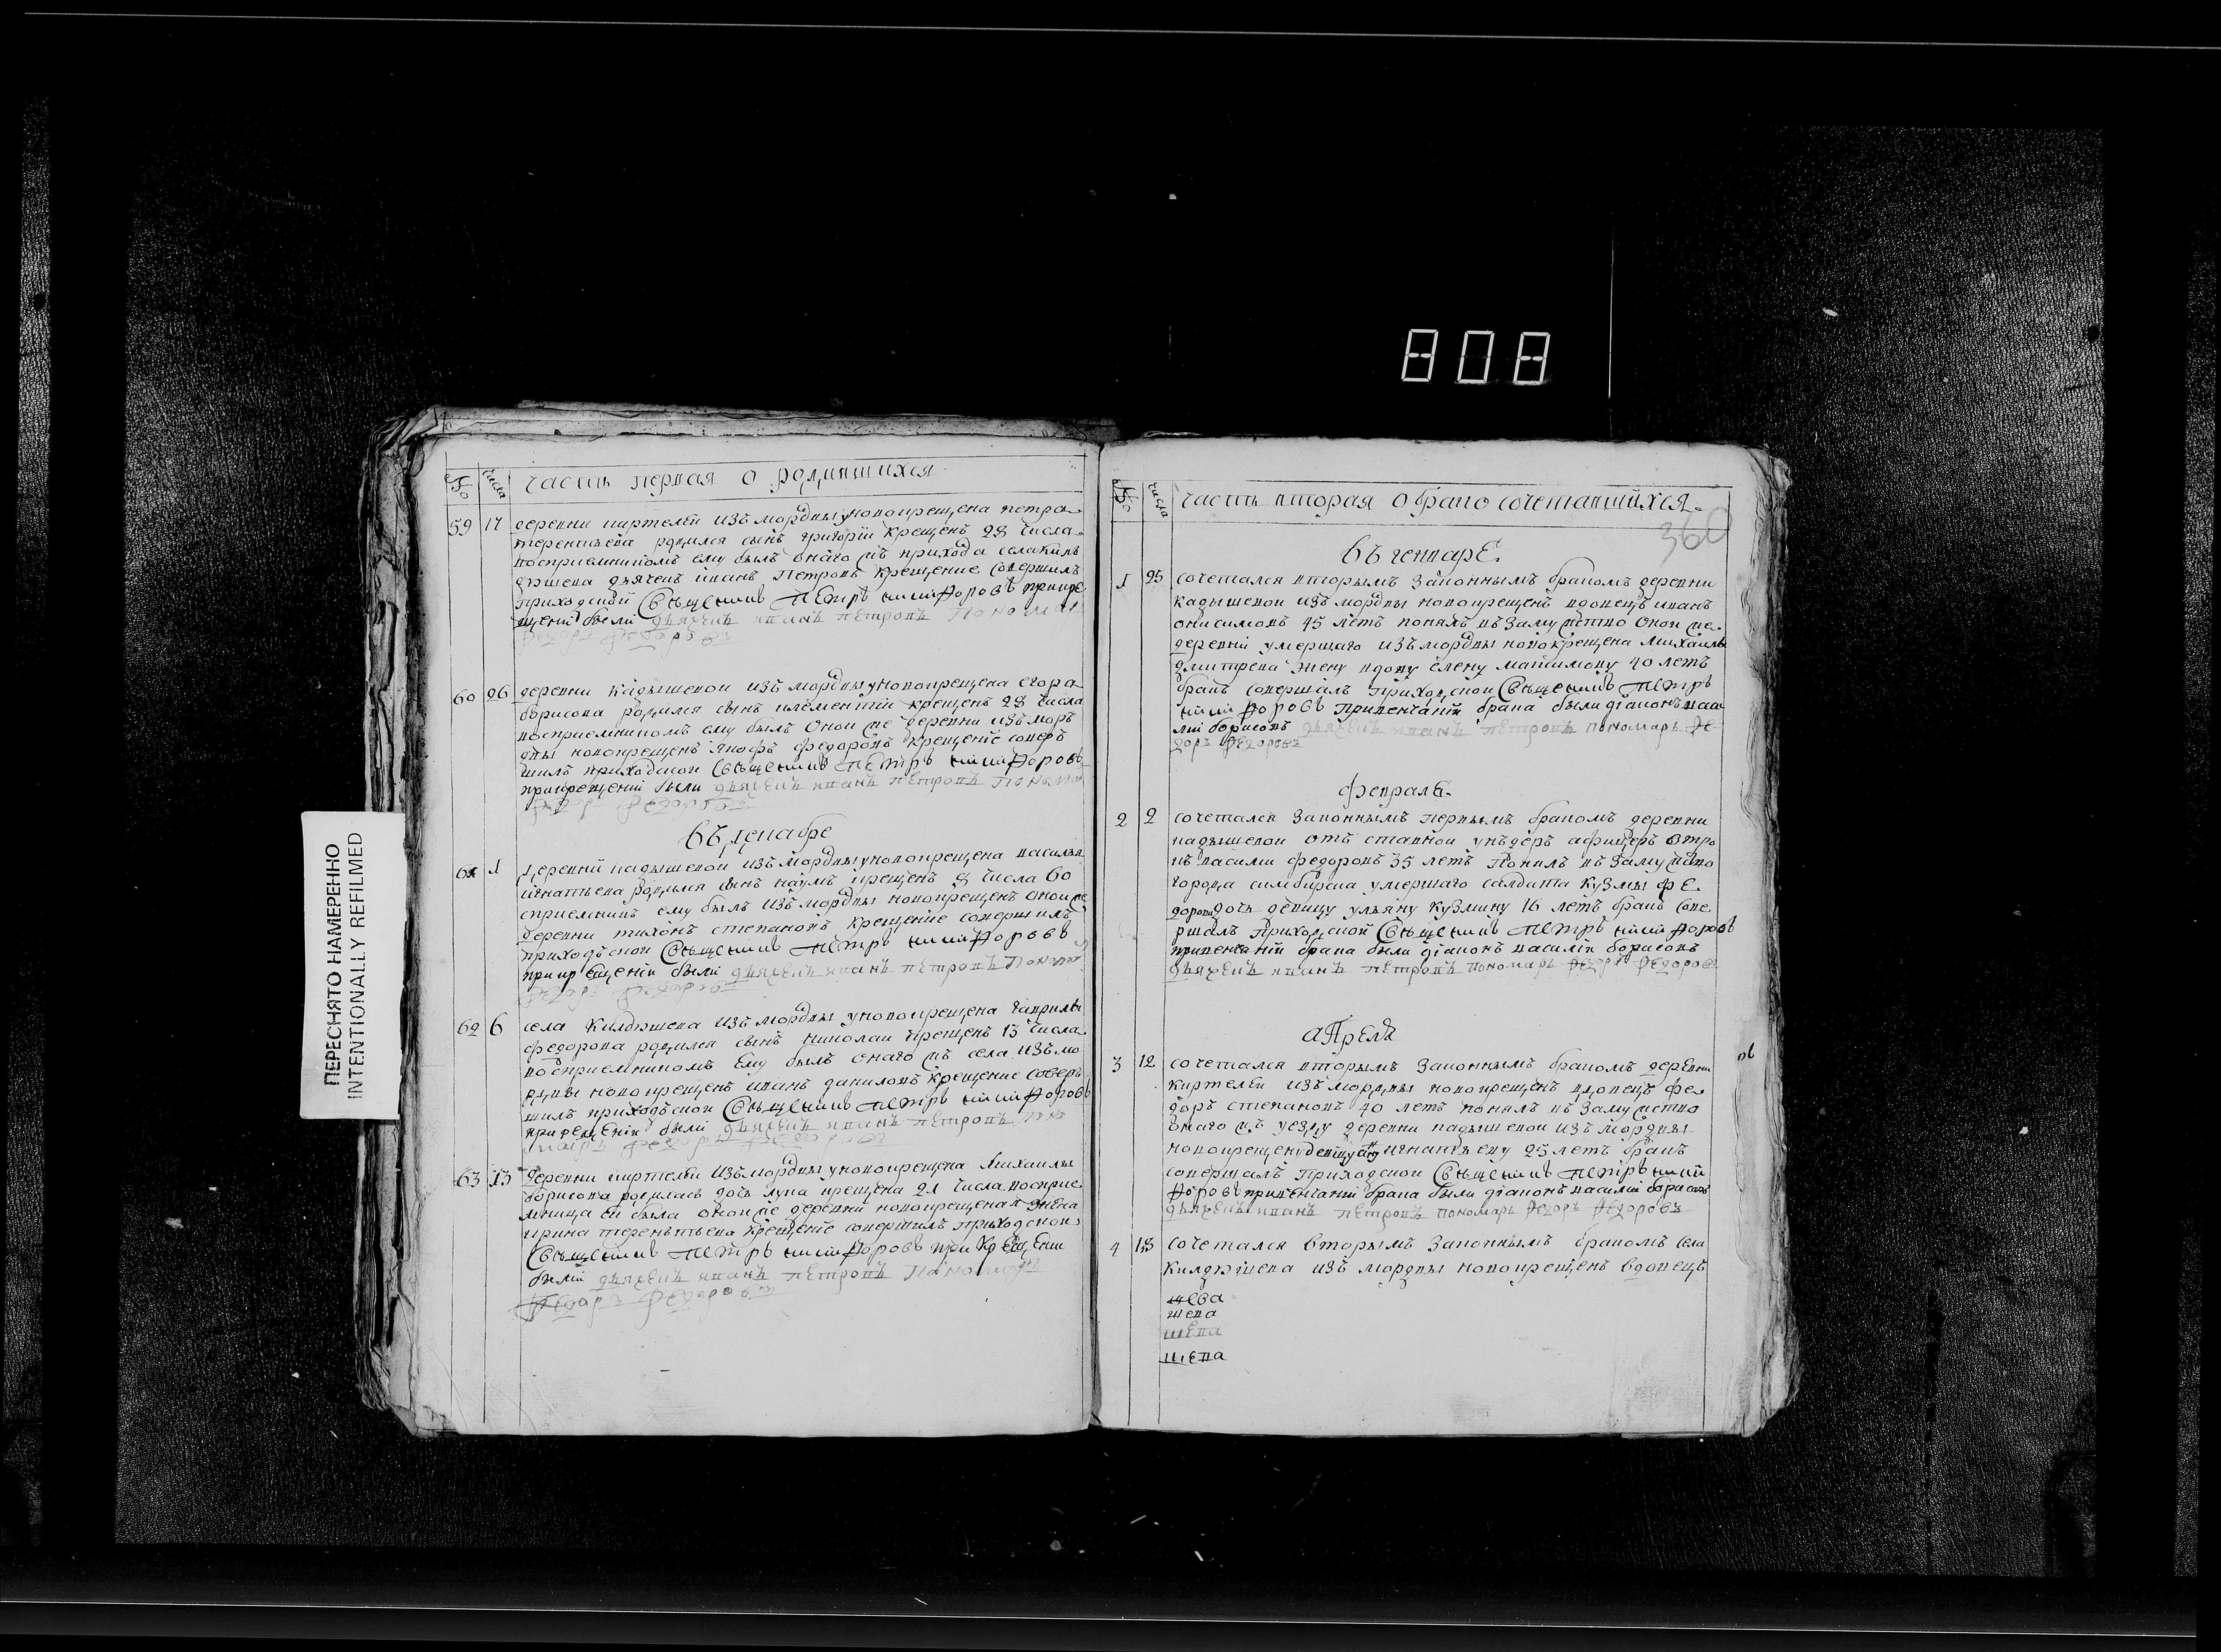 808
ПЕРЕСНЯТО НАМЕРЕННО
INTENTIONALLY REFILMED
№ числа часть первая о родившихся
59 17 деревни киртелей изъ мордвы у новокрещена петра
терентьева родился сынъ григорий крещенъ 28 числа
восприемникомъ ему былъ онаго жъ прихода села килъ
дюшева дьячекъ иванъ Петровъ крещение совершилъ
приходской Священникъ петръ никифоровъ при кре
щений были дьячекъ иванъ петровъ Понома
федоръ федоровъ
60 26 деревни кадышевой изъ мордвы у новокрещена егора
борисова родился сынъ клементий крещенъ 28 числа
восприемникомъ ему былъ Оной же деревни изъ мор
двы новокрещенъ федоровъ крещение совер
шилъ приходской Священникъ петръ никифоровъ
при крещений были дьячекъ иванъ петровъ Понома
федоръ федоровъ
Въ декабре
61 1 деревни кадышевой изъ мордвы у новокрещена василья
игнатьева родился сынъ наумъ крещенъ 8 числа во
сприемникъ ему былъ изъ мордвы новокрещенъ оной же
деревни тихонъ степановъ крещение совершилъ
приходской Священникъ петръ никифоровъ
при крещений были дьячекъ иванъ петровъ Понома
федоръ федоровъ
62 6 села Килдюшева изъ мордвы у новокрещена гаврилы
федорова родился сынъ николай крещенъ 13 числа
восприемникомъ Ему былъ онаго жъ села изъ мо
рдвы новокрещенъ иванъ даниловъ крещение совер
шилъ приходской Священникъ петръ никифоровъ
при крещений были дьячекъ иванъ петровъ Поно
марь федоръ федоровъ
63 13 деревни киртелей изъ мордвы у новокрещена михаилы
борисова родилась дочь лукия крещена 21 числа восприе
мница ей была оной же деревни новокрещеная жена
ирина терентьева крещение совершилъ приходской
Священникъ петръ никифоровъ при Крещении
были дьячекъ иванъ петровъ Пономарь
Федоръ федоровъ
№ числа часть вторая о бракосочетавшихся
360
Въ генваре
1 25 сочетался вторымъ законнымъ бракомъ деревни
кадышевой изъ мордвы новокрещенъ вдовецъ иванъ
онисимовъ 45 летъ понялъ въ замужство оной же
деревни умершаго изъ мордвы новокрещена михаила
дмитрева жену вдову елену максимову 40 летъ
бракъ совершалъ приходской Священникъ петръ
никифоровъ при венчаний брака были діаконъ васи
лий борисовъ дьячекъ иванъ петровъ пономарь фе
доръ федоровъ
февраль
2 2 сочетался законнымъ первымъ бракомъ деревни
кадышевой отъ ставной унъдеръ афицеръ
василий федоровъ 35 летъ Понялъ въ замужство
города симбирска умершаго салдата кузмы фе
дорова дочь девицу ульяну кузмину 16 летъ бракъ сове
ршалъ приходской Священникъ петръ никифоровъ
при венчаний брака были діаконъ василий борисовъ
дьячекъ иванъ петровъ пономарь федоръ федоровъ
апрель
3 12 сочетался вторымъ законнымъ бракомъ деревни
киртелей изъ мордвы новокрещенъ вдовецъ фе
доръ степановъ 40 летъ понялъ въ замужство
онаго жъ уезду деревни кадышевой изъ мордвы
новокрещену девицу игнатьеву 25 летъ бракъ
совершалъ приходской Священникъ петръ ники
форовъ при венчаний брака были діаконъ василий борисовъ
дьячекъ иванъ петровъ пономарь федоръ федоровъ
4 18 сочетался вторымъ законнымъ бракомъ села
килдюшева изъ мордвы новокрещенъ вдовецъ
шева
шева
шева
шева